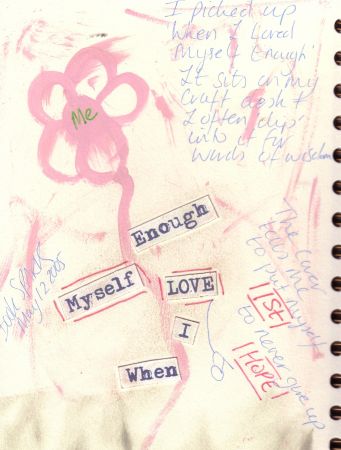 I picked up
When I Loved
Myself Enough'
It sits on my
craft desk +
I often 'dip'
into it for
words of wisdom
Me
Enough
Myself
LOVE
I
When
May 12 2005
The cover
tells me
to put myself
1st
to never give up
HOPE